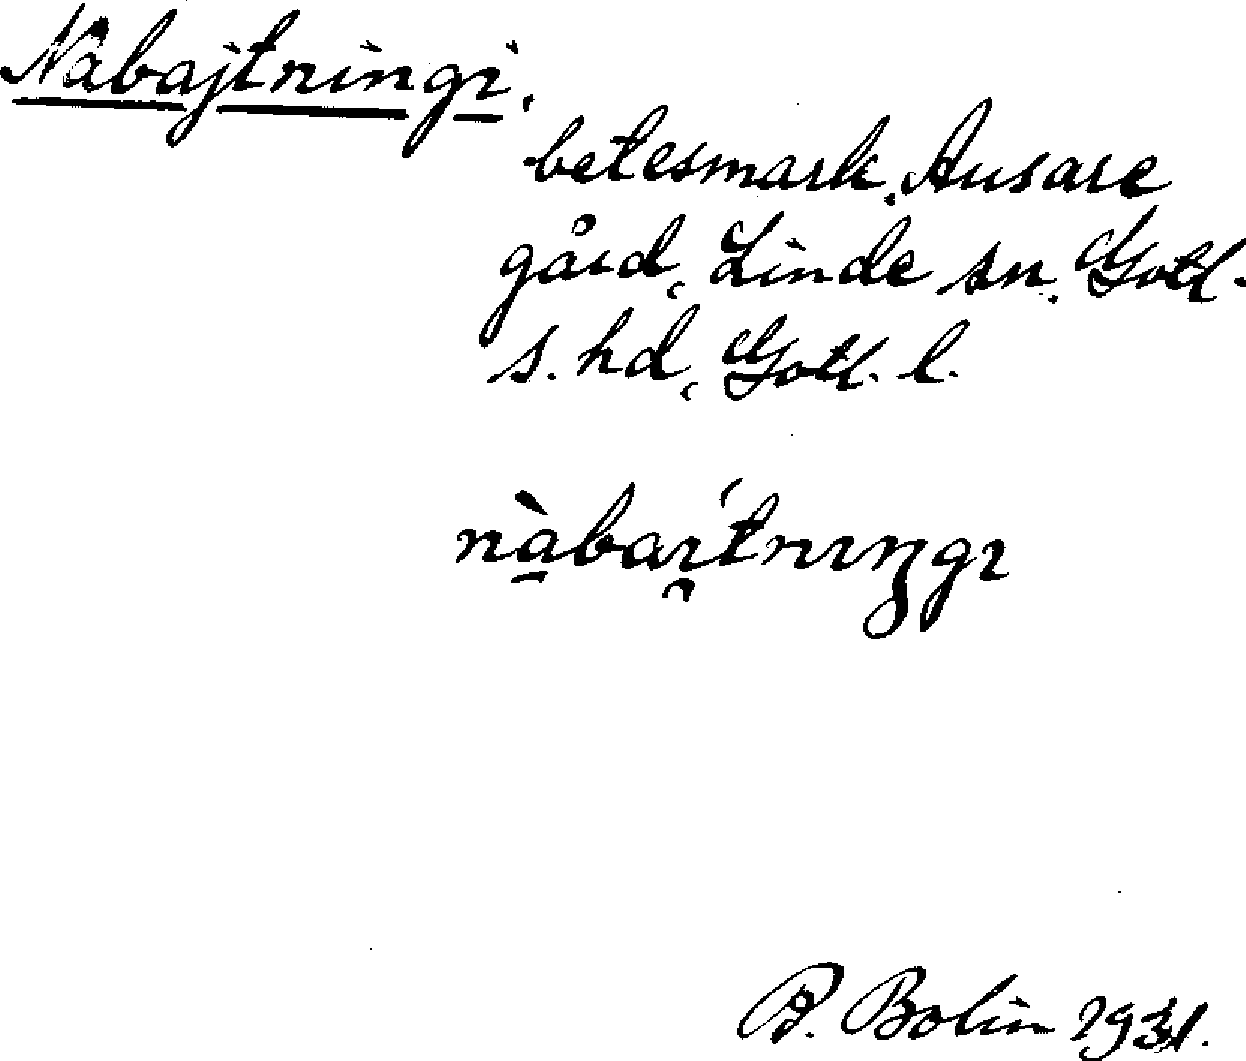 Nabajtningi,
betesmark, Ausare
gård, Linde sn. Gotl.
s. hd, Gotl. l.
nàbai̯tnıŋgı
P. Bolin 1931.